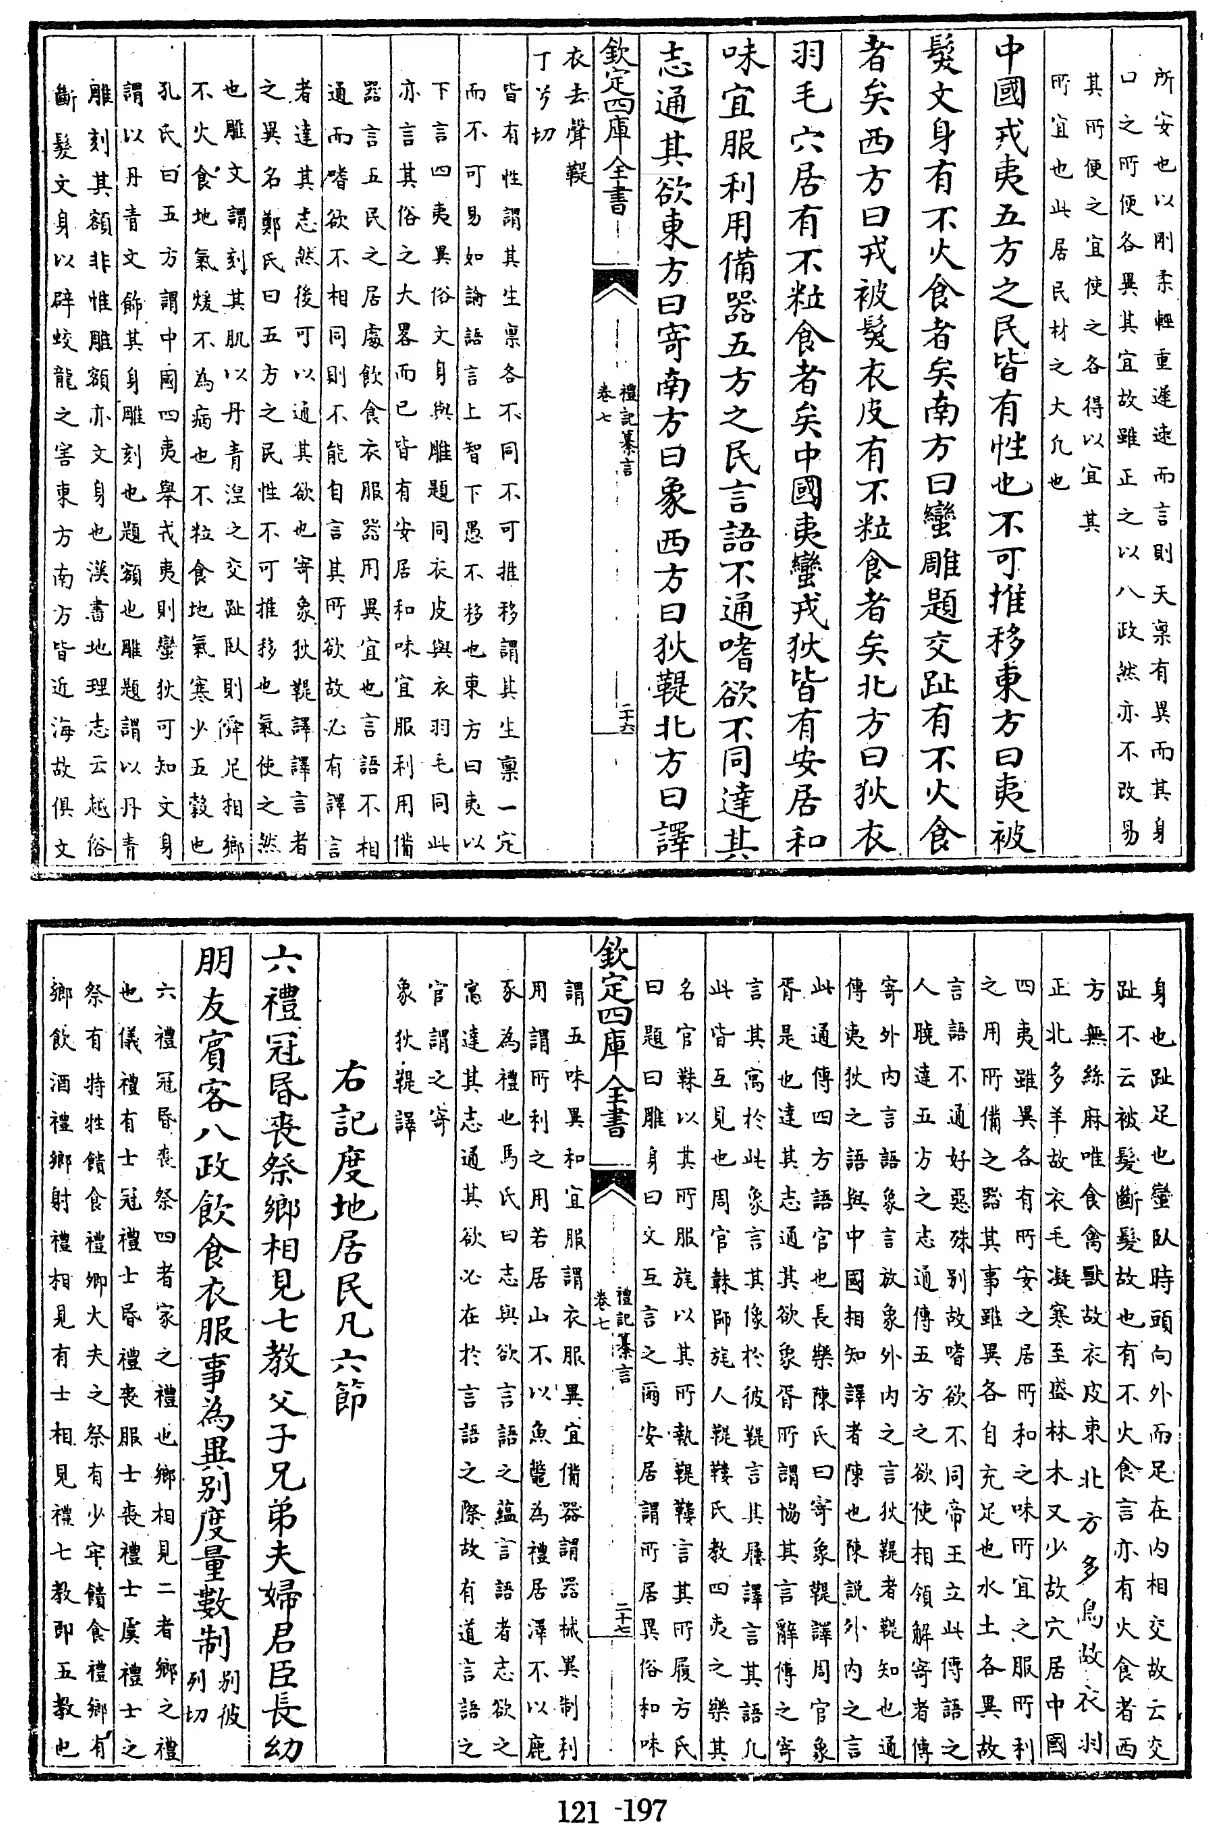 所安也以剛柔輕重遲速而言則天稟有異而其身
口之所便各異其宜故雖正之以八政然亦不改易
其所便之宜使之各得以宜其
所宜也此居民材之大凡也
中國戎夷五方之民皆有性也不可推移東方曰夷被
髮文身有不火食者矣南方曰蠻雕題交趾有不火食
者矣西方曰戎被髮衣皮有不粒食者矣北方曰狄衣
羽毛穴居有不粒食者矣中國夷蠻戎狄皆有安居和
味宜服利用備器五方之民言語不通嗜欲不同達其
志通其欲東方曰寄南方曰象西方曰狄鞮北方曰譯
欽定四庫全書
禮記纂言
卷七
二十六
衣去聲鞮
丁兮切
皆有性謂其生稟各不同不可推移謂其生稟一定
而不可易如論語言上智下愚不移也東方曰夷以
下言四夷異俗文身與雕題同衣皮與衣羽毛同此
亦言其俗之大畧而已皆有安居和味宜服利用備
器言五民之居處飲食衣服器用異宜也言語不相
通而嗜欲不相同則不能自言其所欲故必有譯言
者達其志然後可以通其欲也寄象狄鞮譯譯言者
之異名鄭氏曰五方之民性不可推移也氣使之然
也雕文謂刻其肌以丹青涅之交趾臥則僢足相鄉
不火食地氣煖不為病也不粒食地氣寒少五穀也
孔氏曰五方謂中國四夷舉戎夷則蠻狄可知文身
謂以丹青文飾其身雕刻也題額也雕題謂以丹青
雕刻其額非惟雕額亦文身也漢書地理志云越俗
斷髮文身以辟蛟龍之害東方南方皆近海故俱文
身也趾足也蠻臥時頭向外而足在內相交故云交
趾不云被髮斷髮故也有不火食言亦有火食者西
方無絲麻唯食禽獸故衣皮東北方多鳥故衣羽
正北多羊故衣毛凝寒至盛林木又少故穴居中國
四夷雖異各有所安之居所和之味所宜之服所利
之用所備之器其事雖異各自充足也水土各異故
言語不通好惡殊別故嗜欲不同帝王立此傳語之
人曉達五方之志通傳五方之欲使相領解寄者傳
寄外內言語象言放象外內之言狄鞮者鞮知也通
傳夷狄之語與中國相知譯者陳也陳說外內之言
此通傳四方語官也長樂陳氏曰寄象鞮譯周官象
胥是也達其志通其欲象胥所謂協其言辭傳之寄
言其寓於此象言其像於彼鞮言其履譯言其語凡
此皆互見也周官韎師旄人鞮鞻氏教四夷之樂其
名官韎以其所服旄以其所執鞮鞻言其所履方氏
曰題曰雕身曰文互言之爾安居謂所居異俗和味
欽定四庫全書
禮記纂言
卷七
二十七
謂五味異和宜服謂衣服異宜備器謂器械異制利
用謂所利之用若居山不以魚鼈為禮居澤不以鹿
豕為禮也馬氏曰志與欲言語之蘊言語者志欲之
寓達其志通其欲必在於言語之際故有道言語之
官謂之寄
象狄鞮譯
右記度地居民凡六節
六禮冠昬喪祭鄉相見七教父子兄弟夫婦君臣長幼
朋友賓客八政飲食衣服事為異別度量數制
別彼
列切
六禮冠昬喪祭四者家之禮也鄉相見二者鄉之禮
也儀禮有士冠禮士昬禮喪服士喪禮士虞禮士之
祭有特牲饋食禮卿大夫之祭有少牢饋食禮鄉有
鄉飲酒禮鄉射禮相見有士相見禮七教即五教也
121-197